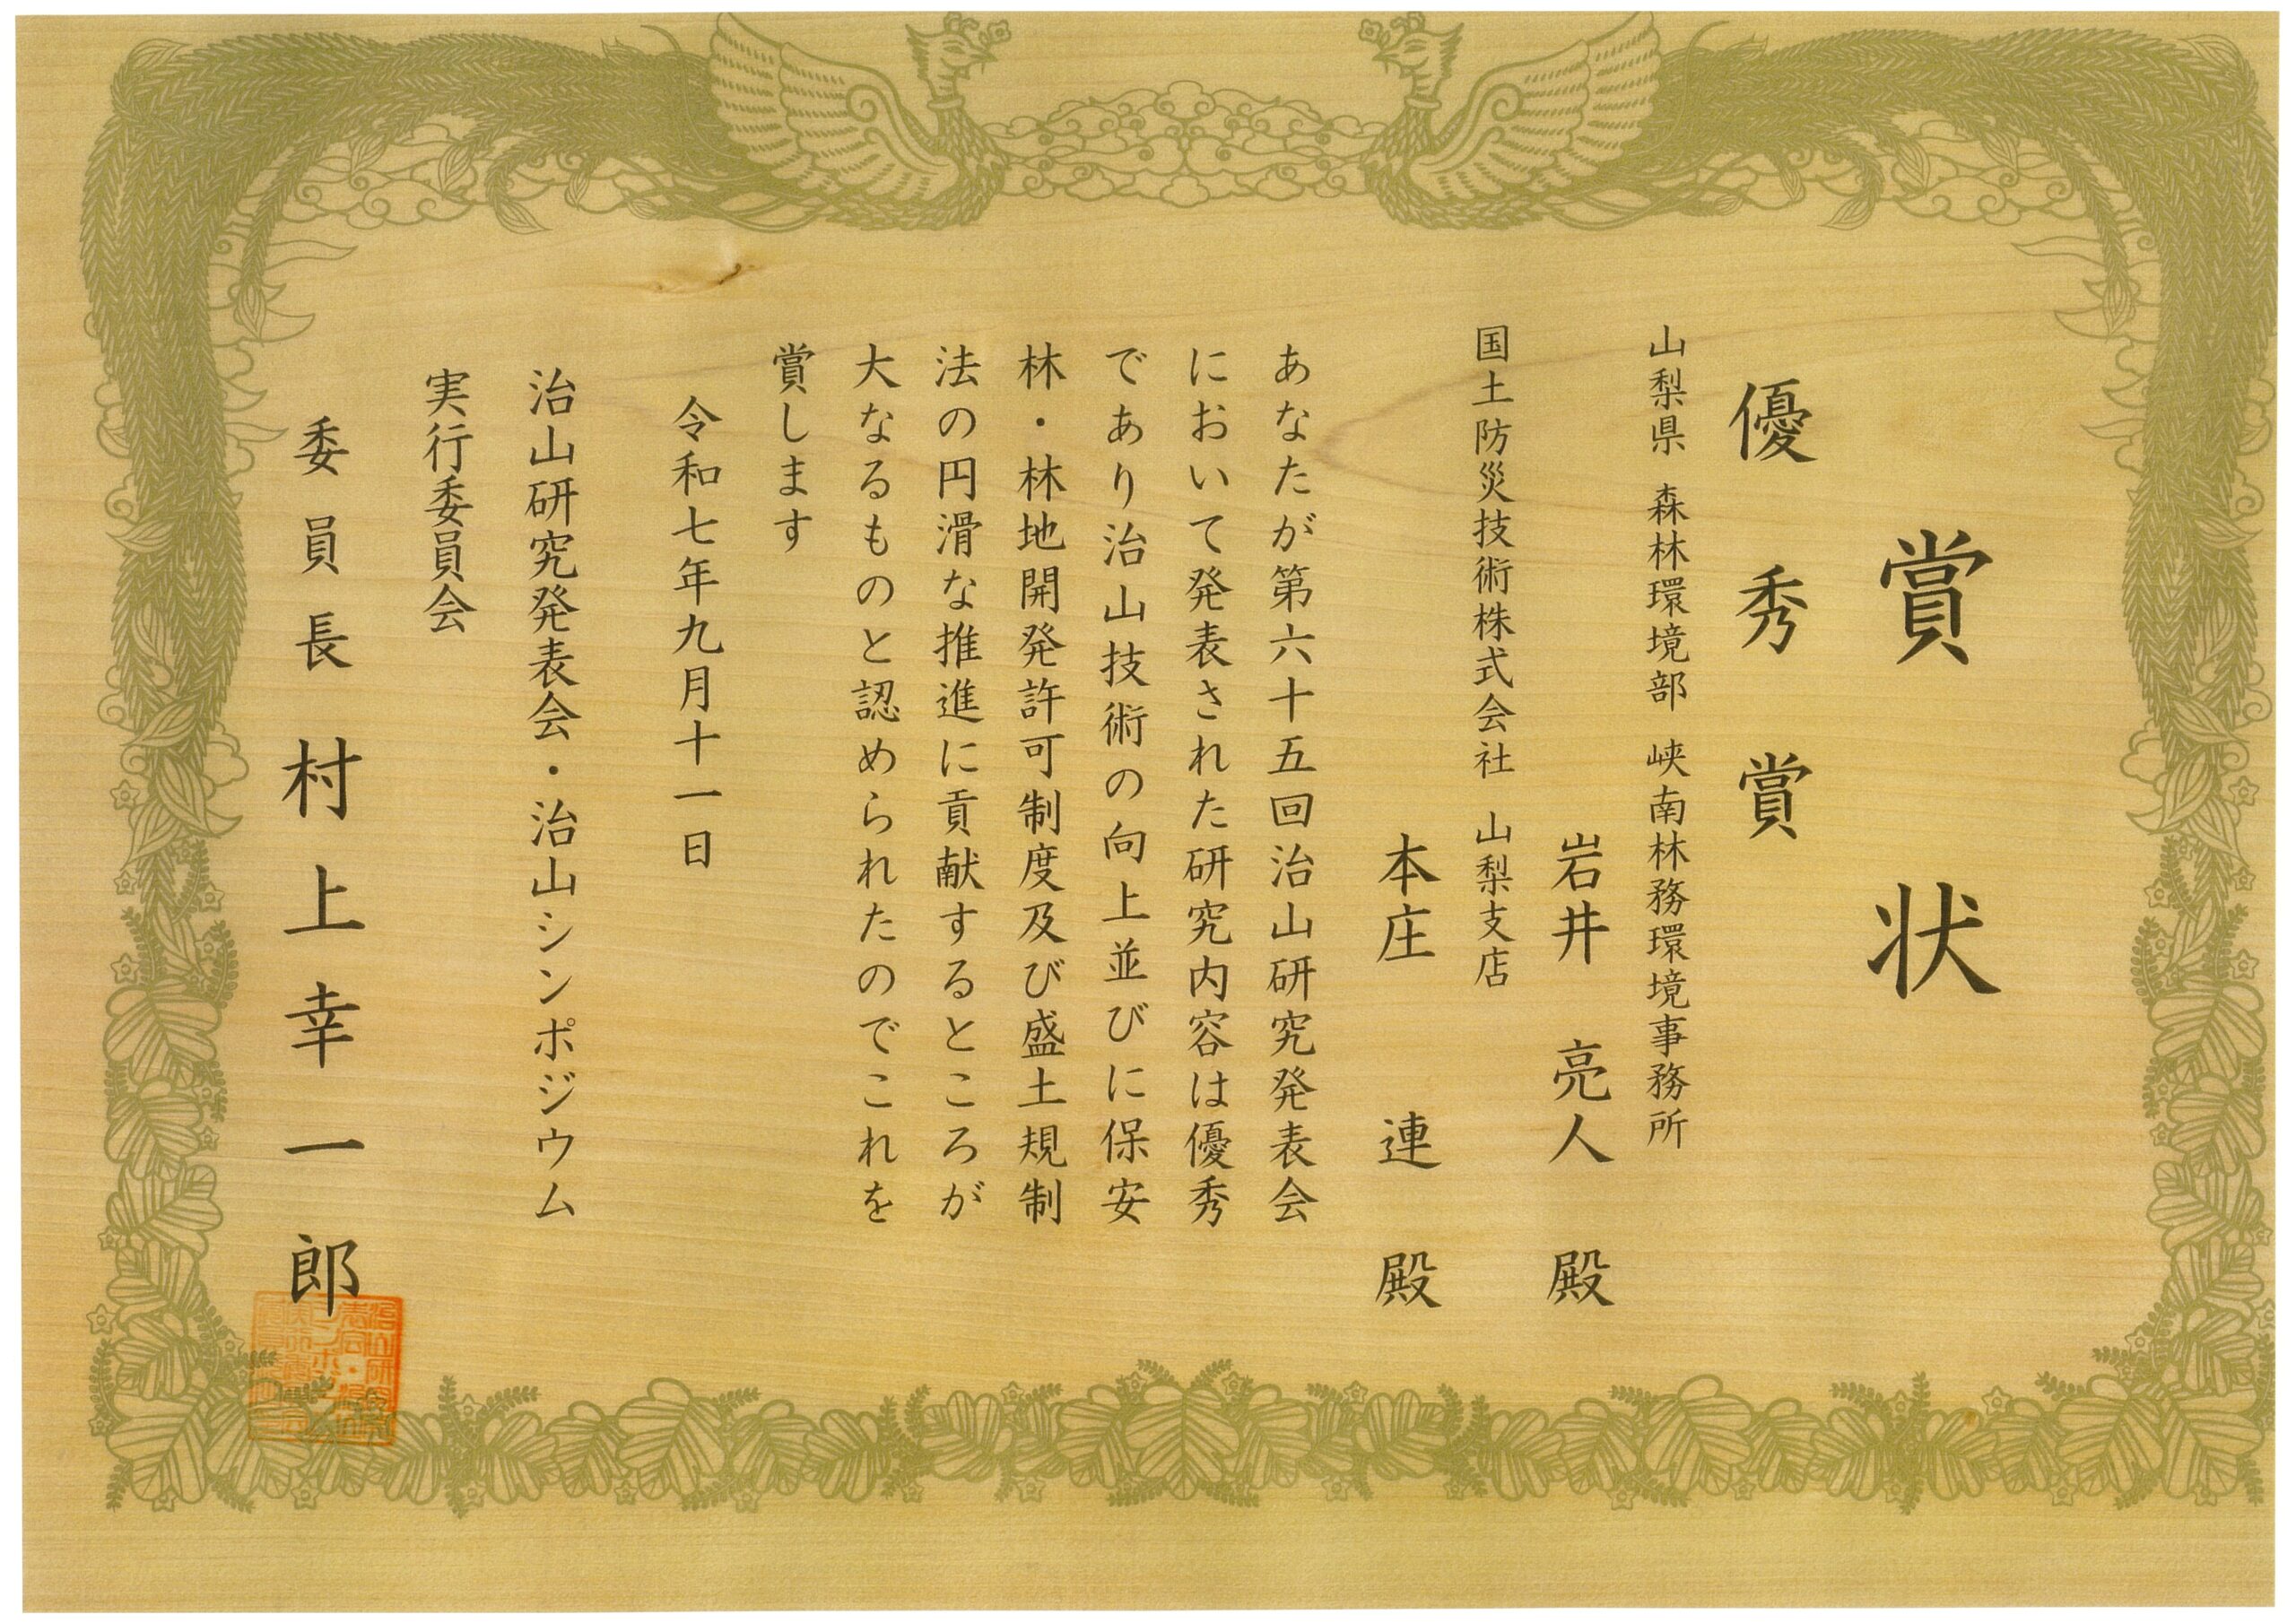 賞状
優秀賞
山梨県 森林環境部 峡南林務環境事務所
岩井 亮人 殿
国土防災技術株式会社 山梨支店
本庄 連 殿
あなたが第六十五回治山研究発表会
において発表された研究内容は優秀
であり治山技術の向上並びに保安
林・林地開発許可制度及び盛土規制
法の円滑な推進に貢献するところが
大なるものと認められたのでこれを
賞します
令和七年九月十一日
治山研究発表会・治山シンポジウム
実行委員会
委員長 村上幸一郎